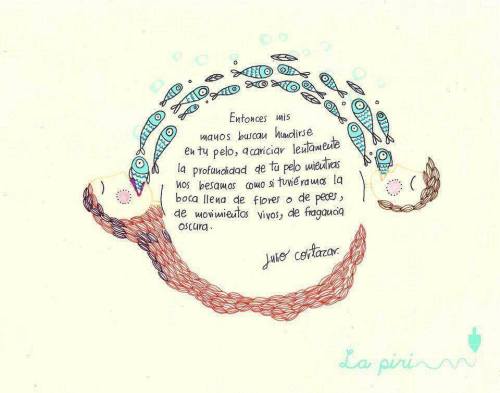 Entonces mis
manos buscan hundirse
en tu pelo, acariciar lentamente
la profundidad de tu pelo mientras
nos besamos como si tuviéramos la
boca llena de flores o de peces,
de movimientos vivos, de fragancia
oscura.
Julio Cortazar.
La piri